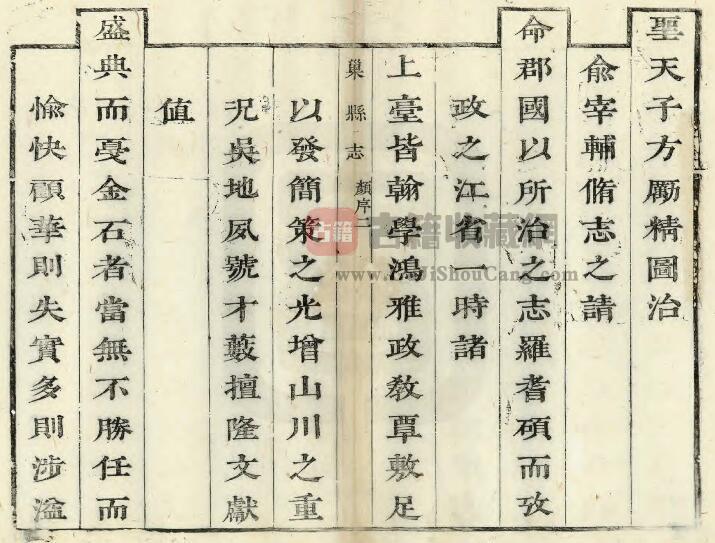 聖天子方勵精圖治
俞宰輔脩志之請
命郡國以所治之志羅耆碩而攷
政之江省一時諸
上臺皆翰學鴻雅政敎覃敷足
巢縣志
顏序
以發簡策之光增山川之重
況吳地夙號才藪擅隆文獻
值
盛典而戞金石者當無不勝任而
愉快顧華則失實多則涉溢
古籍
古籍收藏網
www.GuJiShouCang.com